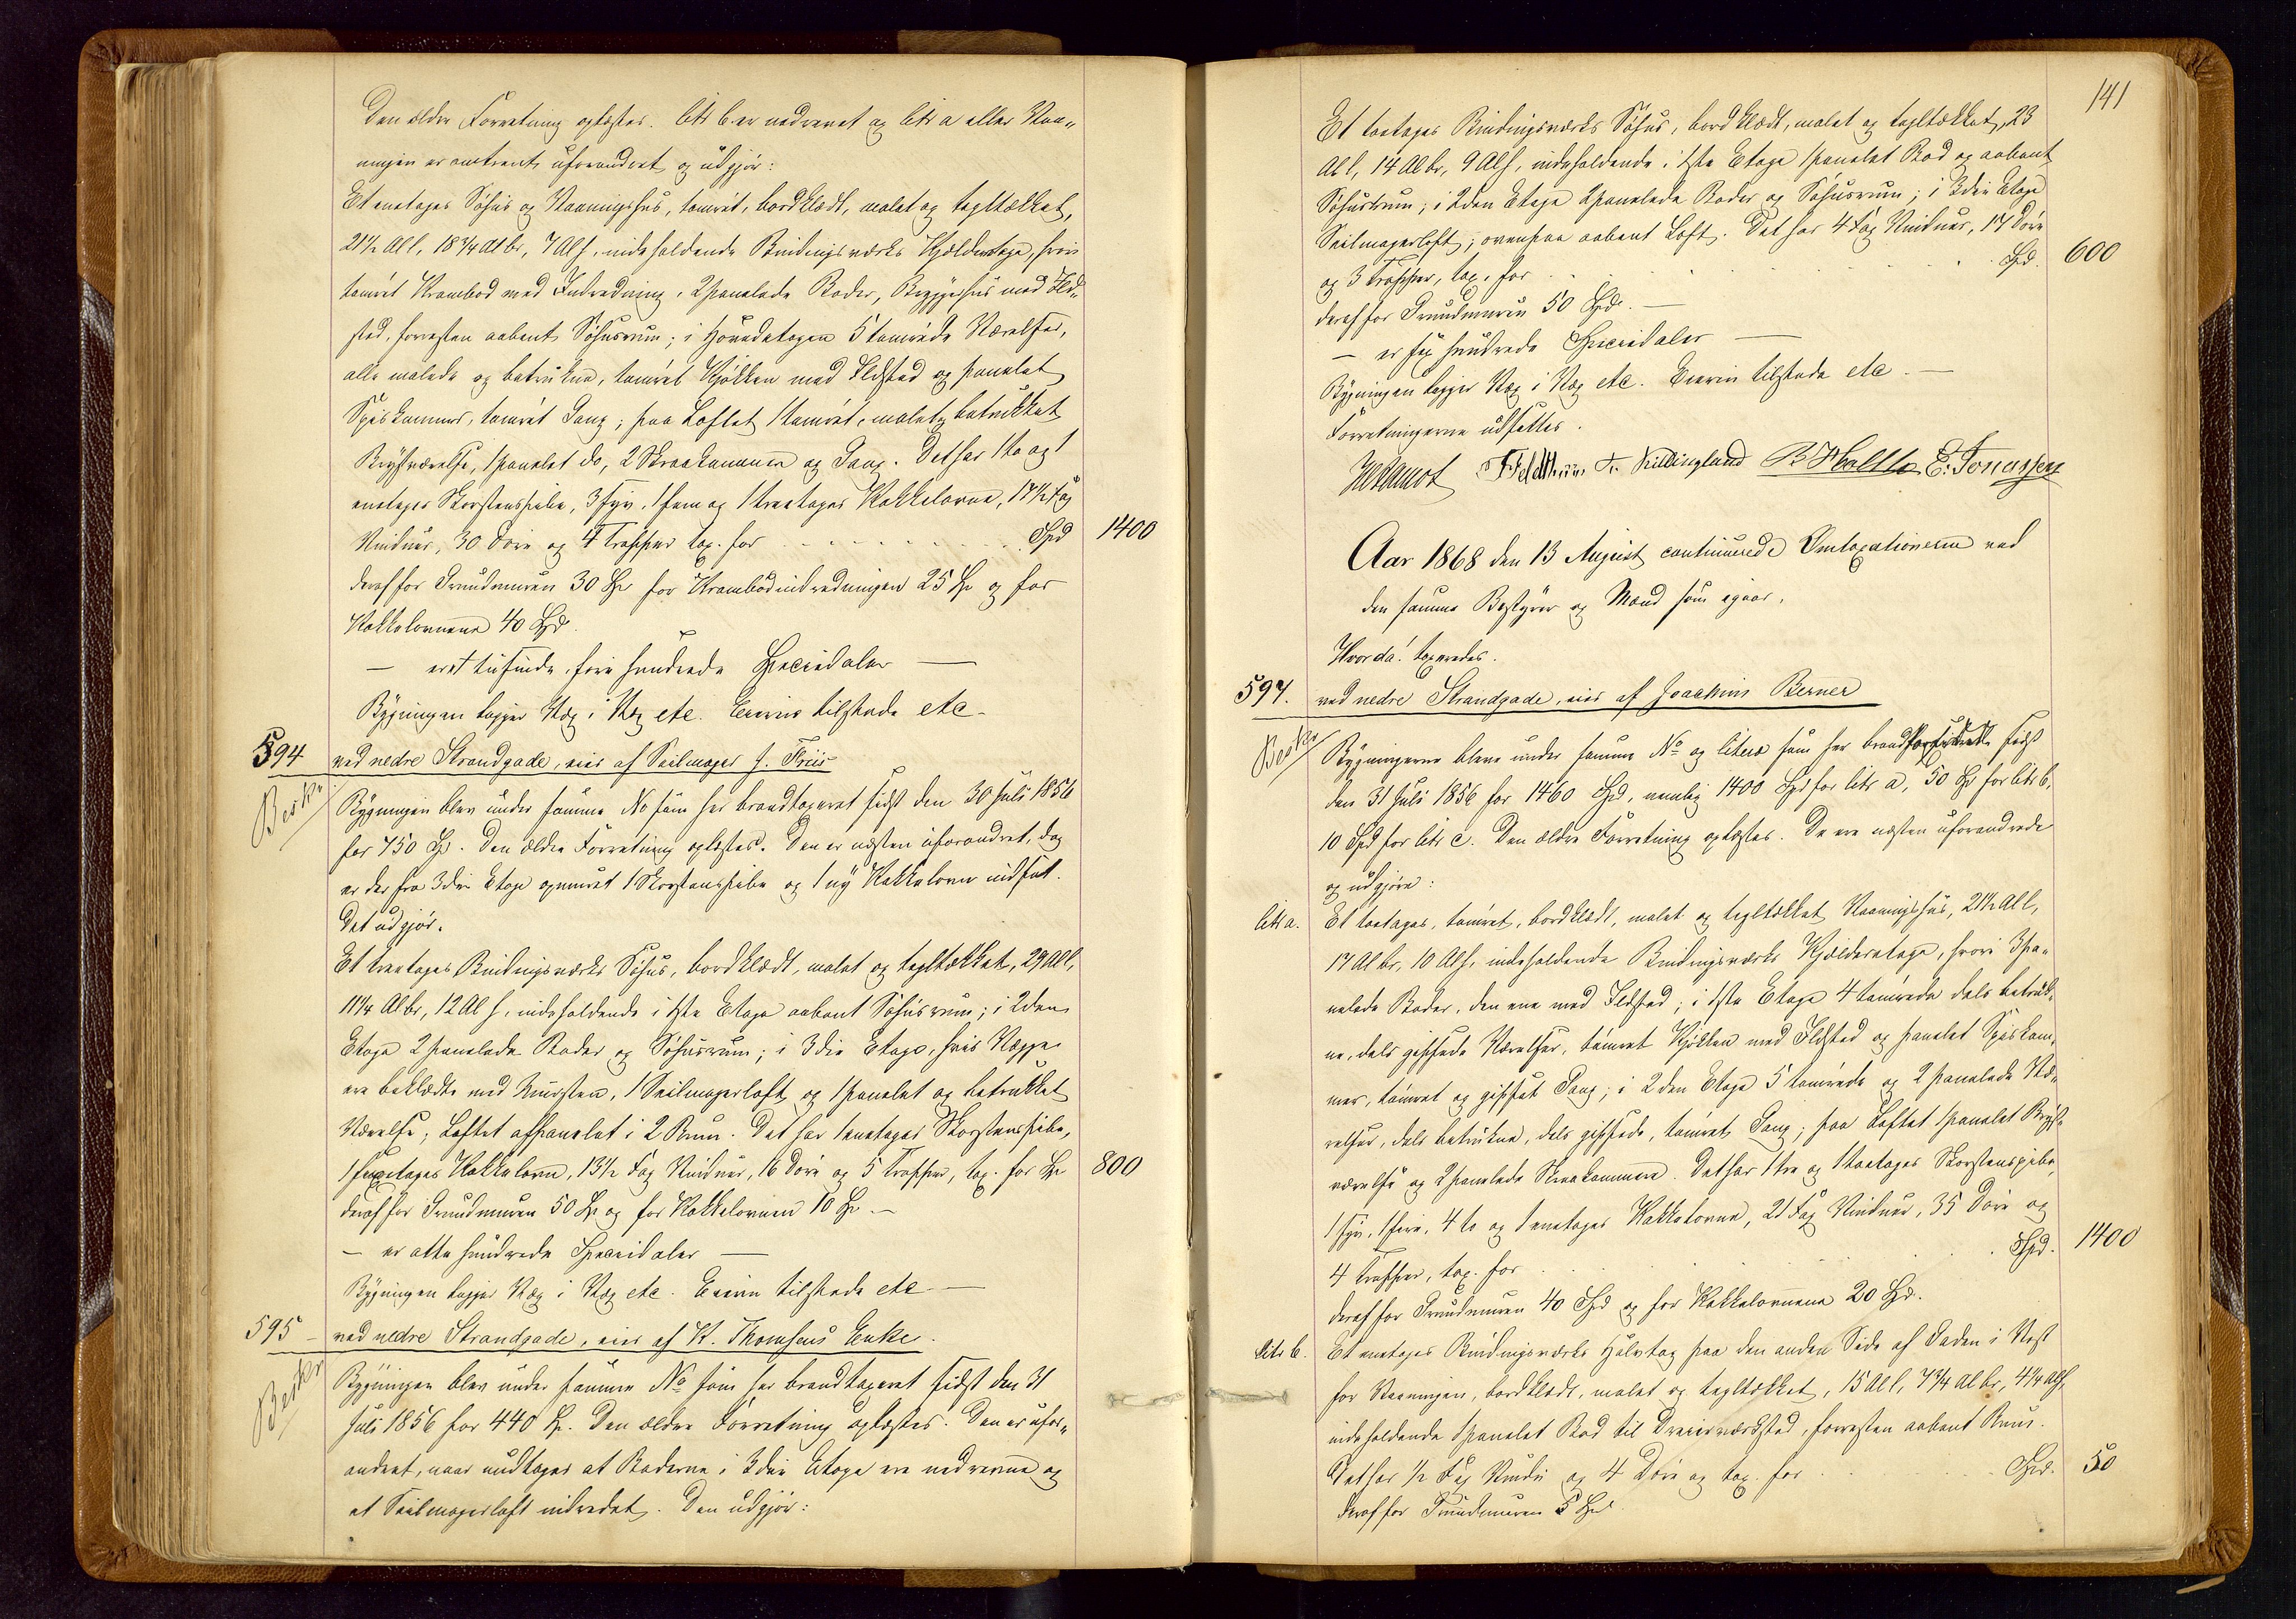 Den ældre Forretning oplæstes. litr b er nedrevet og litr a eller Vaa„
ningen er omtrent uforandret og udgjør:
Et enetages Søhus og Vaaningshus, tømret, bordklædt, malet og tegltækket,
21½ Al l, 18¾ Al br, 7 Al h, indeholdende Bindingsværks Kjælderetage, hvori
tømret Krambod med Indredning, 2 panelede Boder, Bryggehus med Ild„
sted, forresten aabent Søhusrum; i Hovedetagen 5 tømrede Værelser,
alle malede og betrukne, tømret Kjøkken med Ildsted og panelet
Spiskammer, tømret Gang; paa Loftet 1 tømret, malet og betrukket
Kvistværelse, 1 panelet do, 2 Skraakammere og Gang. Det har 1 to og 1
enetages Skorstenspibe, 3 fyr, 1 fem og 1 treetages Kakkelovne, 17½ Fag
Vinduer, 30 Døre og 4 Trapper tax. for Spd 1400
deraf for Grundmuren 30 Sp. for Krambodindredningen 25 Sp. og for
Kakkelovnene 40 Spd.
— er et tusinde, fire hundrede Speciedaler —
Bygningen ligger Væg i Væg etc. Eieren tilstede etc.
594 ved nedre Strandgade, eies af Seilmager J. Friis
Beskr Bygningen blev under samme No som her brandtaxeret sidst den 30 Juli 1856
for 750 Sp. Den ældre Forretning oplæstes. Den er næsten uforandret, dog
er der fra 3die Etage opmuret 1 Skorstenspibe og 1 ny Kakkelovn indsat.
Det udgjør:
Et treetages Bindingsværks Søhus, bordklædt, malet og tegltækket, 29 Al l,
11¼ Al br, 12 Al h, indeholdende i 1ste Etage aabent Søhusrum; i 2den
Etage 2 panelede Boder og Søhusrum; i 3die Etage, hvis Vægge
ere beklædte med Mursten, 1 Seilmagerloft og 1 panelet og betrukket
Værelse; Loftet afpanelet i 2 Rum. Det har 1 enetages Skorstenspibe,
1 Kakkelovn, 13½ Fag Vinduer, 16 Døre og 5 Trapper, tax. for Sp 800
deraf for Grundmuren 50 Sp og for Kakkelovnen 10 Sp. —
— er otte hundrede Speciedaler —
Bygningen ligger Væg i Væg etc. Eieren tilstede etc —
595 ved nedre Strandgade, eies af K. Thomsens Enke.
Beskr Bygningen blev under samme No som her brandtaxeret sidst den 31
Juli 1856 for 440 Sp. Den ældre Forretning oplæstes. Den er ufor„
andret, naar undtages at Boderne i 3die Etage ere nedrevne og
et Seilmagerloft indredet. Den udgjør:
141
Et toetages Bindingsværks Søhus, bordklædt, malet og tegltækket, 23
Al l, 14 Al br, 9 Al h, indeholdende i 1ste Etage 1 panelet Bod og aabent
Søhusrum; i 2den Etage 2 panelede Boder og Søhusrum; i 3die Etage
Seilmagerloft; ovenpaa aabent Loft. Det har 4 Fag Vinduer, 17 Døre
og 3 Trapper, tax. for Spd. 600
deraf for Grundmuren 50 Spd. —
— er sex hundrede Speciedaler —
Bygningen ligger Væg i Væg etc. Eieren tilstede etc. —
Forretningerne udsattes.
Killingland B Holtte E. Jonassen
Aar 1868 den 13 August continuerede Omtaxationerne ved
den samme Bestyrer og Mænd som igaar.
Hvorda! taxeredes.
597. ved nedre Strandgade, eies af Joachim Berner
Beskr Bygningerne bleve under samme No og litera som her brandforsikret sidst
den 31 Juli 1856 for 1460 Spd, nemlig 1400 Spd for litr a, 50 Sp for litr b,
10 Spd for litr c. Den ældre Forretning oplæstes. De ere næsten uforandrede
og udgjøre:
litr a. Et toetages, tømret, bordklædt, malet og tegltækket Vaaningshus, 21½ Al l,
17 Al br, 10 Al h, indeholdende Bindingsværks Kjælderetage, hvori 3 pa„
nelede Boder, den ene med Ildsted; i 1ste Etage 4 tømrede dels betruk„
ne, dels gipsede Værelser, tømret Kjøkken med Ildsted og panelet Spiskam„
mer, tømret og gipset Gang; i 2den Etage 5 tømrede og 2 panelede Væ„
relser, dels betrukne, dels gipsede, tømret Gang; paa Loftet 1 panelet Kvist„
værelse og 2 panelede Skraakammere. Det har 1 tre og 1 toetages Skorstenspibe,
1 fyr, 1 fire, 4 to og 1 enetages Kakkelovne, 21 Fag Vinduer, 35 Døre og
4 Trapper, tax. for Spd. 1400
deraf for Grundmuren 40 Spd og for Kakkelovnene 20 Sp.
Litr b. Et enetages Bindingsværks Halvtag paa den anden Side af Gaden i Vest
for Vaaningen, bordklædt, malet og tegltækket, 15 Al l, 7¾ Al br, 4¼ Al h,
indeholdende 1 panelet Bod til Dreierværksted, forresten aabent Rum.
Det har ½ Fag Vindu og 4 Døre og tax. for Spd. 50
deraf for Grundmuren 5 Spd